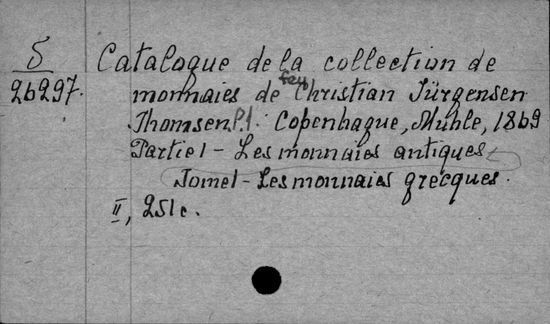 5
26297.
Catalogue de la collection de
monnaies de feu Christian Jürgensen
Thomsen P.1. Copenhague, Muhle, 1869
Partie 1 - Les monnaies antiques
Tome 1 - Les monnaies grecques.
II, 251 c.